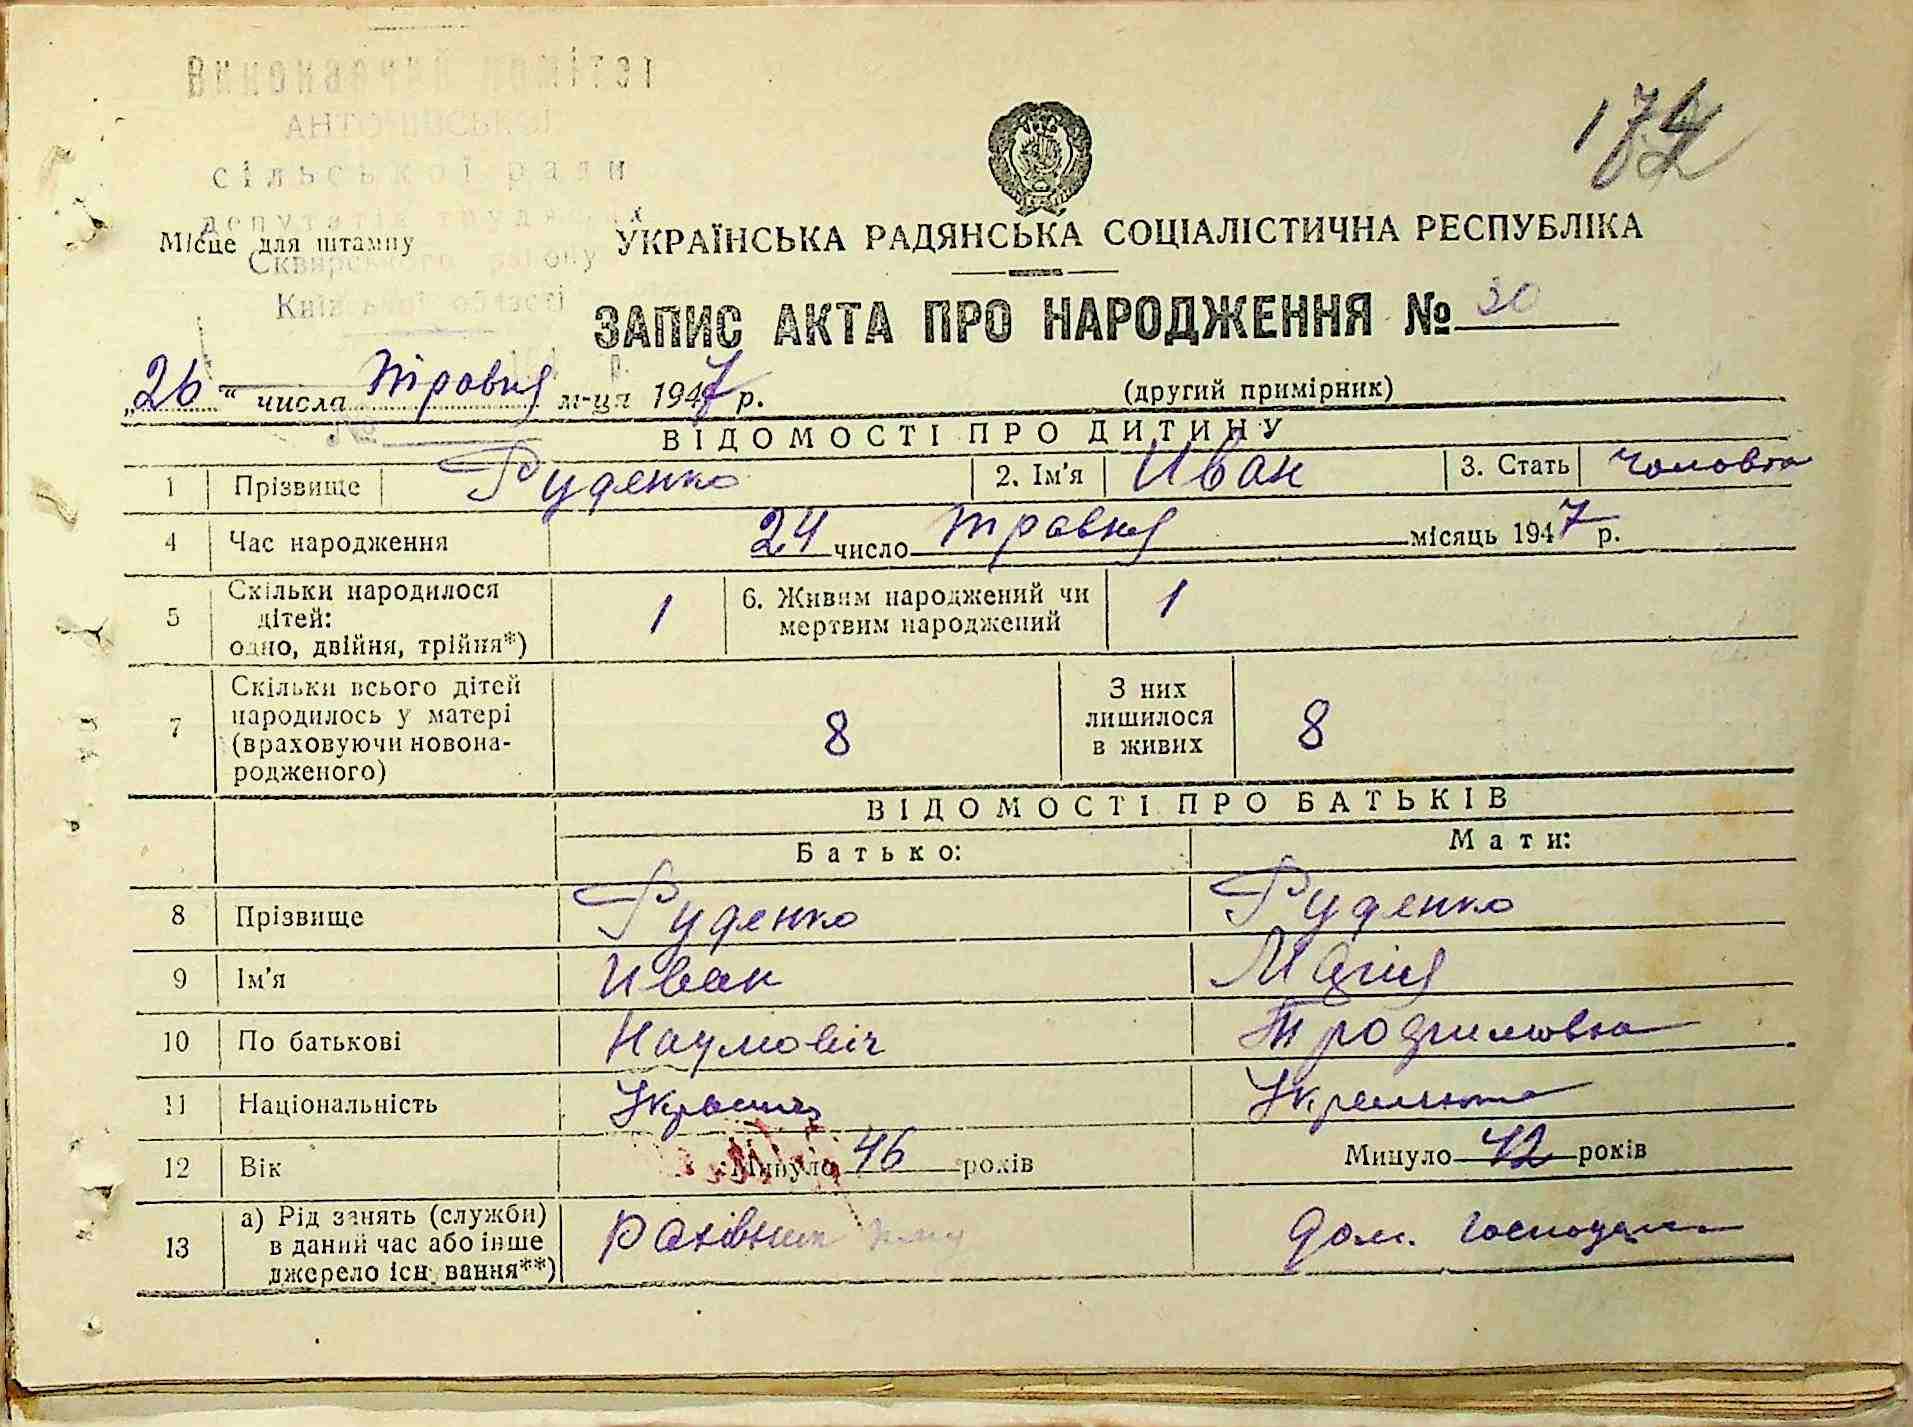 Виконавчий комітет
АНТОНІВСЬКОЇ
сільської ради
депутатів трудящих
Сквирського району
Київської області
Місце для штампу
УКРАЇНСЬКА РАДЯНСЬКА СОЦІАЛІСТИЧНА РЕСПУБЛІКА
ЗАПИС АКТА ПРО НАРОДЖЕННЯ № 30
„26“ числа травня м-ця 1947 р. (другий примірник)
№
ВІДОМОСТІ ПРО ДИТИНУ
1 Прізвище Руденко 2. Ім'я Иван 3. Стать
4 Час народження 24 число травня місяць 1947 р.
5 Скільки народилося дітей: одно, двійня, трійня*) 1 6. Живим народжений чи мертвим народжений 1
7 Скільки всього дітей народилось у матері (враховуючи новонародженого) 8 З них лишилося в живих 8
ВІДОМОСТІ ПРО БАТЬКІВ
Батько: Мати:
8 Прізвище Руденко Руденко
9 Ім'я Иван Марія
10 По батькові Наумовіч
11 Національність
12 Вік Минуло 46 років Минуло 42 років
13 а) Рід занять (служби) в даний час або інше джерело існування**) дом.